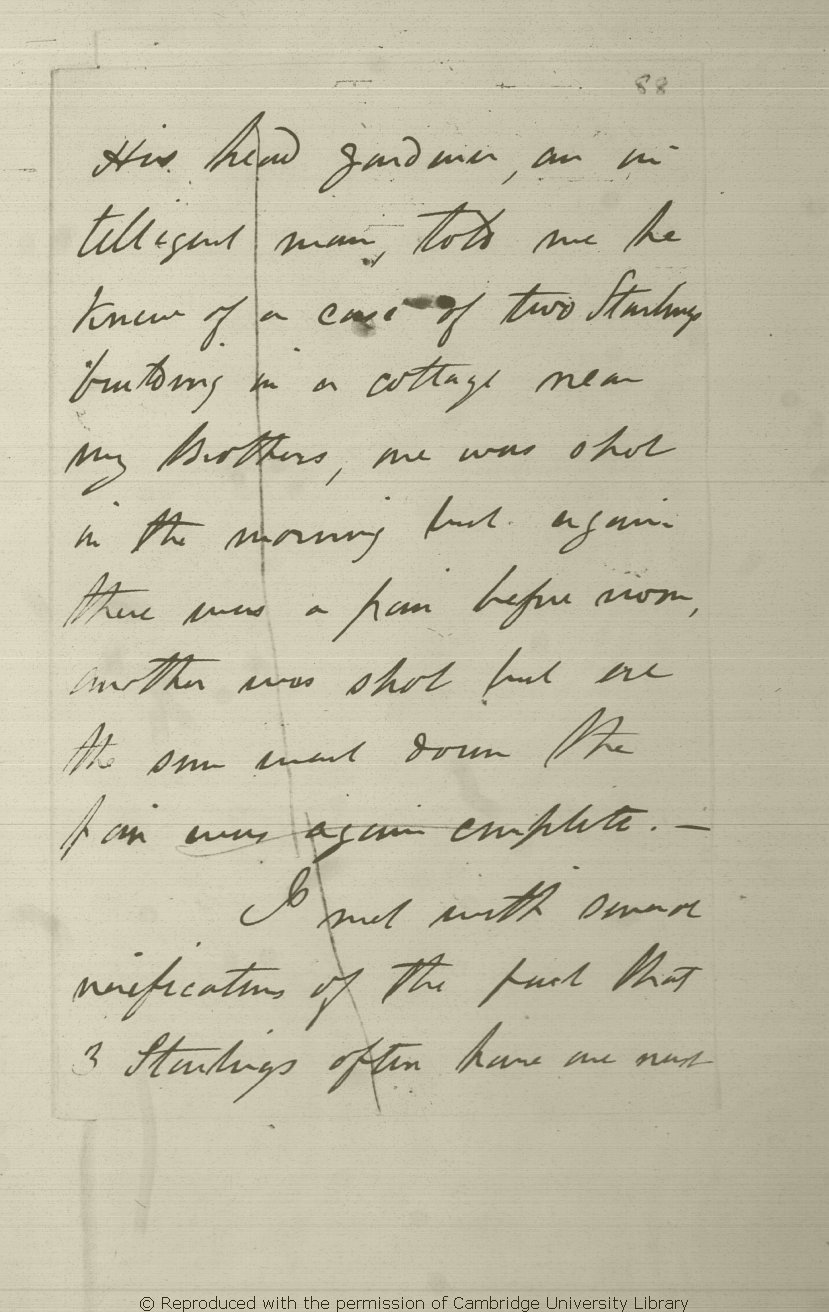 88
His head gardener, an in-
telligent man, told me he
knew of a case of two Starlings
building in a cottage near
my Brothers, one was shot
in the morning but again
there was a pair before noon,
another was shot but ere
the sun went down the
pair was again complete. —
I met with several
verifications of the fact that
3 Starlings often have one nest
© Reproduced with the permission of Cambridge University Library